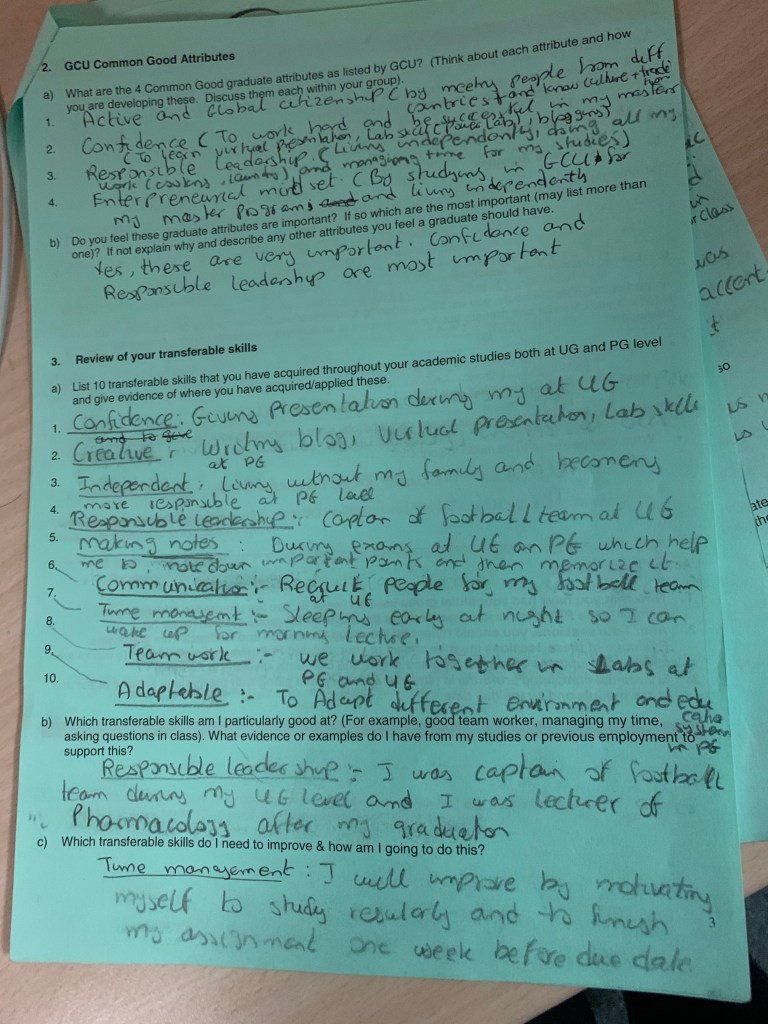 2. GCU Common Good Attributes
a) What are the 4 Common Good graduate attributes as listed by GCU? (Think about each attribute and how
you are developing these. Discuss them each within your group).
1. Active and Global citizenship (by meeting people from diff
countries and know culture + trade
2. Confidence (To work hard and be successful in my masters
(To learn virtual presentation, Lab skill (power lab), bloggung)
3. Responsible leadership. (living independently, doing all my
work (cooking, laundry) and managing time for my studies)
4. Enterpreneurial mind set. (By studying in GCU for
my master programs and living independently
b) Do you feel these graduate attributes are important? If so which are the most important (may list more than
one)? If not explain why and describe any other attributes you feel a graduate should have.
Yes, these are very important. Confidence and
Responsible leadership are most important
3. Review of your transferable skills
a) List 10 transferable skills that you have acquired throughout your academic studies both at UG and PG level
and give evidence of where you have acquired/applied these.
1. Confidence: Giving Presentation during my at UG
and to give
2. Creative: Writing blog, Virtual presentation, Lab skill
at PG
3. Independent: Living without my family and becoming
more responsible at PG level
4. Responsible leadership: Captan of football team at UG
5. Making notes: During exams at UG an PG which help
6. me to note down important points and then memorize it.
7. Communication:- Recruit people for my football team
at UG
8. Time managemt:- Sleeping early at night so I can
wake up for morning lecture.
9. Team work :- we work together in Labs at
10. PG and UG
Adaptable :- To Adapt different environment and edu
catio
system
in PG
b) Which transferable skills am I particularly good at? (For example, good team worker, managing my time,
asking questions in class). What evidence or examples do I have from my studies or previous employment to
support this?
Responsible leadership :- I was captain of football
team during my UG level and I was lecturer of
Pharmacology after my graduation
c) Which transferable skills do I need to improve & how am I going to do this?
Time management: I will improve by motivating
myself to study regularly and to finish
my assignment one week before due date
3
class
was
accent